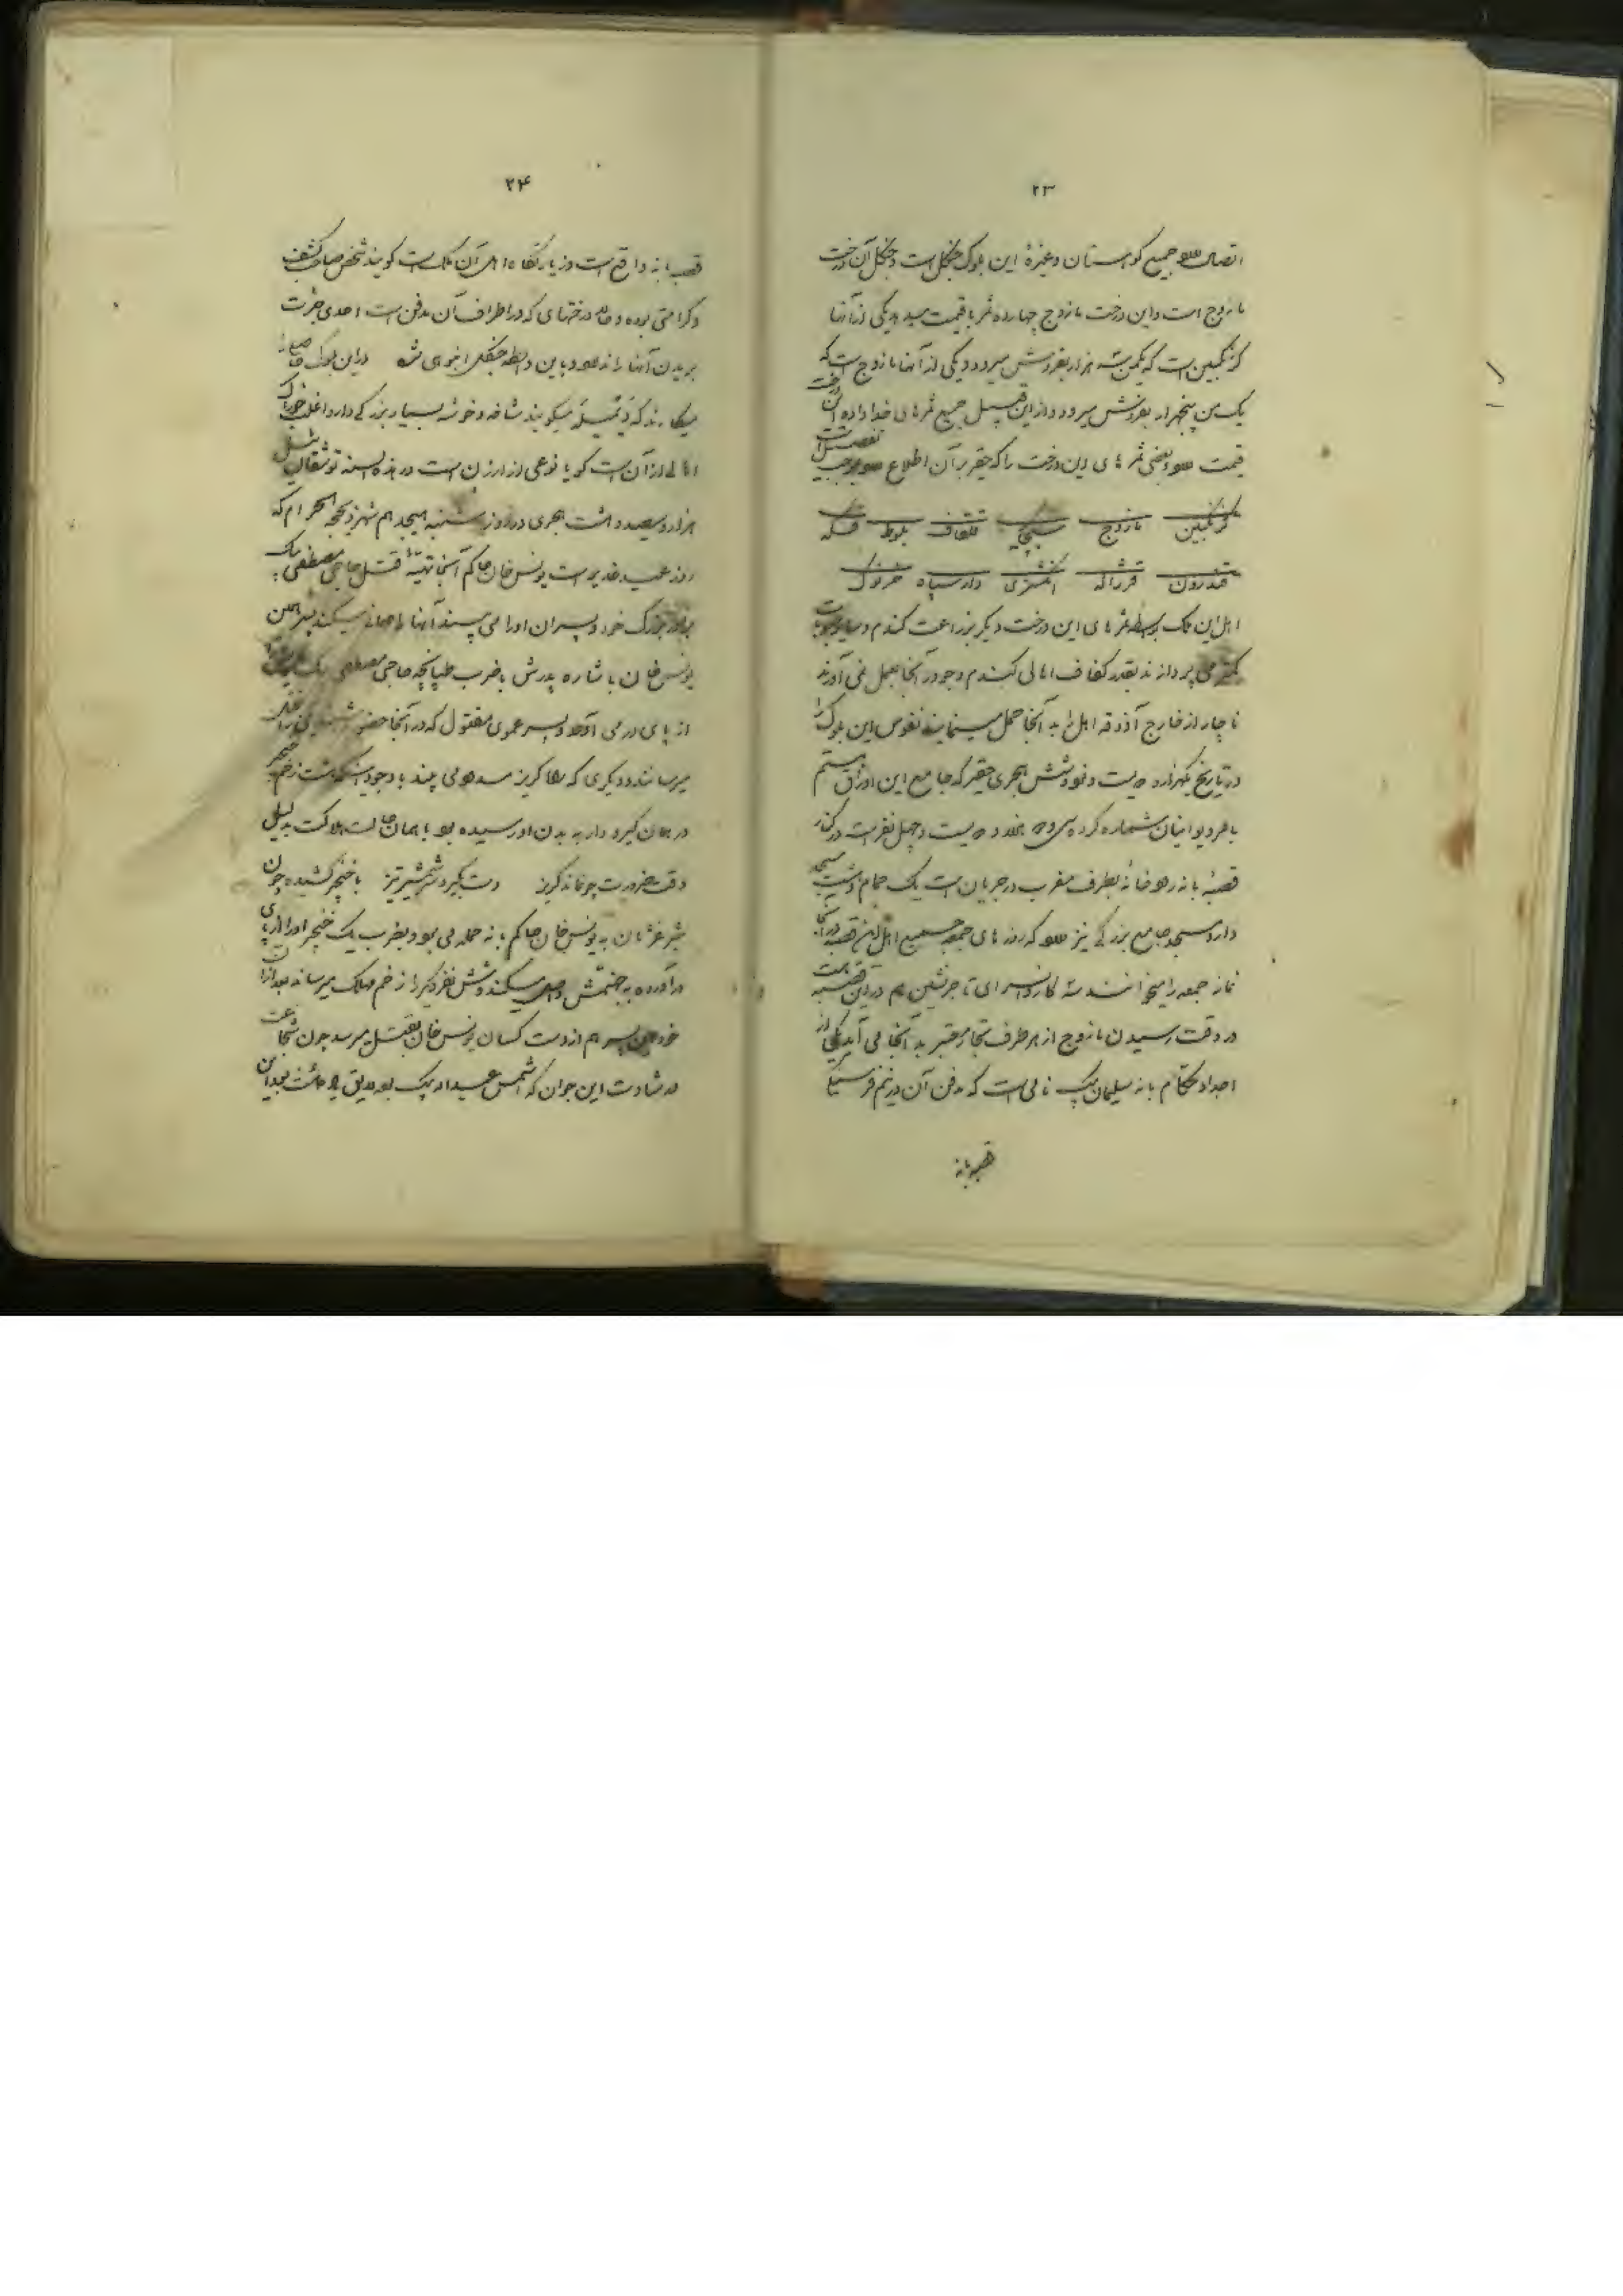 ۲۳
اتصال دارد جمیع کوهستان و غیرهٔ این بلوک جنگل است و جنگل آن درخت
مازوج است و این درخت مازوج چهارده ثمر با قیمت میدهد یکی از آنها
گزنگبین است که یکمن شه هزار بفروش میرود و یکی از آنها مازوج است که
یک من پنجهزار بفروش میرود و از این قبیل جمیع ثمرهای خداداده آن درخت
قیمت دارد و بعضی ثمرهای این درخت را که حقیر بر آن اطلاع دارد بموجب تفصیل است
گزنگبین مازوج سیچکه قلقاف بلوط قسکه
قندرون قزراله انگشتری دارسیاه خرنوک
اهل این ملک بواسطه ثمرهای این درخت دیگر بزراعت گندم و سایر حبوبات
کمتر می پردازند بقدر کفاف اهالی گندم و جو در آنجا بعمل نمی آورند
ناچار از خارج آذوقه اهل را به آنجا حمل مینمایند نفوس این بلوک را
در تاریخ یکهزار و دویست و نود و شش هجری حقیر که جامع این اوراق هستم
با مر دیوانیان شماره کرده سی و دو هزار و دویست و چهل نفر است در کنار
قصبهٔ بانه رودخانهٔ بطرف مغرب در جریان است یک حمام و شش مسجد
دارد مسجد جامع بزرگی نیز دارد که روزهای جمعه جمیع اهل این قصبه در آنجا
نماز جمعه را میخوانند سه کاروانسرای تاجرنشین هم در این قصبه است
در وقت رسیدن مازوج از هر طرف تجار معتبر به آنجا می آید یکی از
اجداد حکام بانه سلیمان بیک نامی است که مدفن آن در نیم فرسنگی
قصبه بانه
۲۴
قصبه بانه واقع است و زیارتگاه اهل آن ملک است گویند شخص صاحب کشف
و کرامتی بوده و درختهای که در اطراف آن مدفن است احدی جرئت
بریدن آنها را ندارد و باین واسطه جنگل انبوهی شده در این بلوک
میکارند که میگویند شاخه و خوشه بسیار بزرگی دارد اغلب خوراک
اهالی از آن است گویا نوعی از ارزن است در هذه السنه توشقان ئیل
هزار و سیصد و هشت هجری در روز شنبه هیجدهم شهر ذیحجه الحرام که
روز عید غدیر است یونس خان حاکم آنجا تهیهٔ قتل حاجی مصطفی بیک
برادر بزرگ خود و پسران او را می بیند آنها را میکند پسر همین
یونس خان باشاره پدرش با ضرب طپانچه حاجی مصطفی بیک
از پای در می آورد و پسر عموی مقتول که در آنجا حضور
میرسانند و دیگری که راه گریز مسدود می بیند با وجود اینکه هشت زخم خنجر
در همان گیرو دار به بدن او رسیده بود با همان حالت هلاکت بدلیل
وقت ضرورت چو نماند گریز دست بگیرد سر شمشیر تیز با خنجر کشیده چون
شیر غرّان به یونس خان حاکم بانه حمله می برد و بضرب یک خنجر او را از پای
در آورده به جهنمش واصل میکند و شش نفر دیگر را زخم مهلک میرساند بعد از آن
خود همین پسر هم از دست کسان یونس خان بقتل میرسد چون شجاعت
و رشادت این جوان که اسمش عبداله بیک بود بعد از این